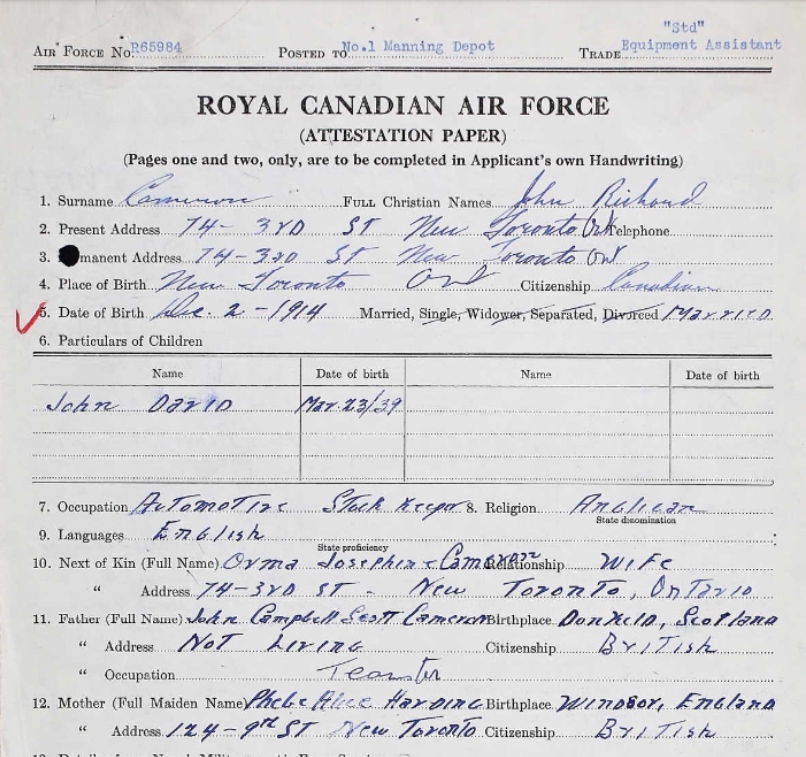 "Std"
AIR FORCE No. R65984 POSTED TO No.1 Manning Depot TRADE Equipment Assistant
ROYAL CANADIAN AIR FORCE
(ATTESTATION PAPER)
(Pages one and two, only, are to be completed in Applicant's own Handwriting)
1. Surname Cameron FULL Christian Names John Richard
2. Present Address 74-3RD ST New Toronto Ont Telephone
3. manent Address 74-3RD ST New Toronto Ont
4. Place of Birth New Toronto Ont Citizenship Canadian
5. Date of Birth Dec. 2-1914 Married, Single, Widower, Separated, Divorced Married
6. Particulars of Children
Name Date of birth Name Date of birth
John David Mar. 23/39
7. Occupation Automotive Stock Keeper 8. Religion Anglican
State denomination
9. Languages English
State proficiency
10. Next of Kin (Full Name) Orma Josephine Cameron Relationship Wife
" Address 74-3RD ST. New Toronto, Ontario
11. Father (Full Name) John Campbell Scott Cameron Birthplace Dunkeld, Scotland
" Address Not Living Citizenship British
" Occupation Teamster
12. Mother (Full Maiden Name) Phebe Alice Harding Birthplace Windsor, England
" Address 124-9th ST New Toronto Citizenship British